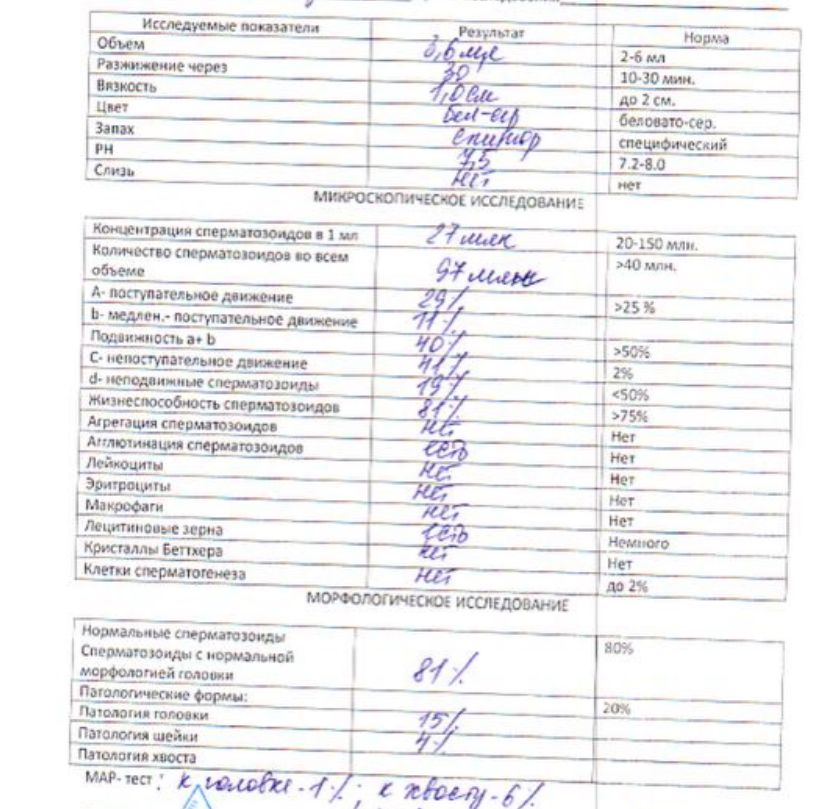 Исследуемые показатели Результат Норма
Объем 3,6 мл 2-6 мл
Разжижение через 30 10-30 мин.
Вязкость 1,0 см до 2 см.
Цвет бел-сер беловато-сер.
Запах специфический
PH 7,5 7.2-8.0
Слизь нет нет
МИКРОСКОПИЧЕСКОЕ ИССЛЕДОВАНИЕ
Концентрация сперматозоидов в 1 мл 27 млн 20-150 млн.
Количество сперматозоидов во всем
объеме 97 млн >40 млн.
А- поступательное движение 29% >25 %
b- медлен.- поступательное движение 11%
Подвижность a+ b 40% >50%
С- непоступательное движение 41% 2%
d- неподвижные сперматозоиды 19% <50%
Жизнеспособность сперматозоидов 81% >75%
Агрегация сперматозоидов нет Нет
Агглютинация сперматозоидов есть Нет
Лейкоциты нет Нет
Эритроциты нет Нет
Макрофаги нет Нет
Лецитиновые зерна есть Немного
Кристаллы Беттхера нет Нет
Клетки сперматогенеза нет до 2%
МОРФОЛОГИЧЕСКОЕ ИССЛЕДОВАНИЕ
Нормальные сперматозоиды 80%
Сперматозоиды с нормальной
морфологией головки 81%
Патологические формы: 20%
Патология головки 15%
Патология шейки 4%
Патология хвоста
МАР- тест: к головке - 1%; к хвосту - 6%